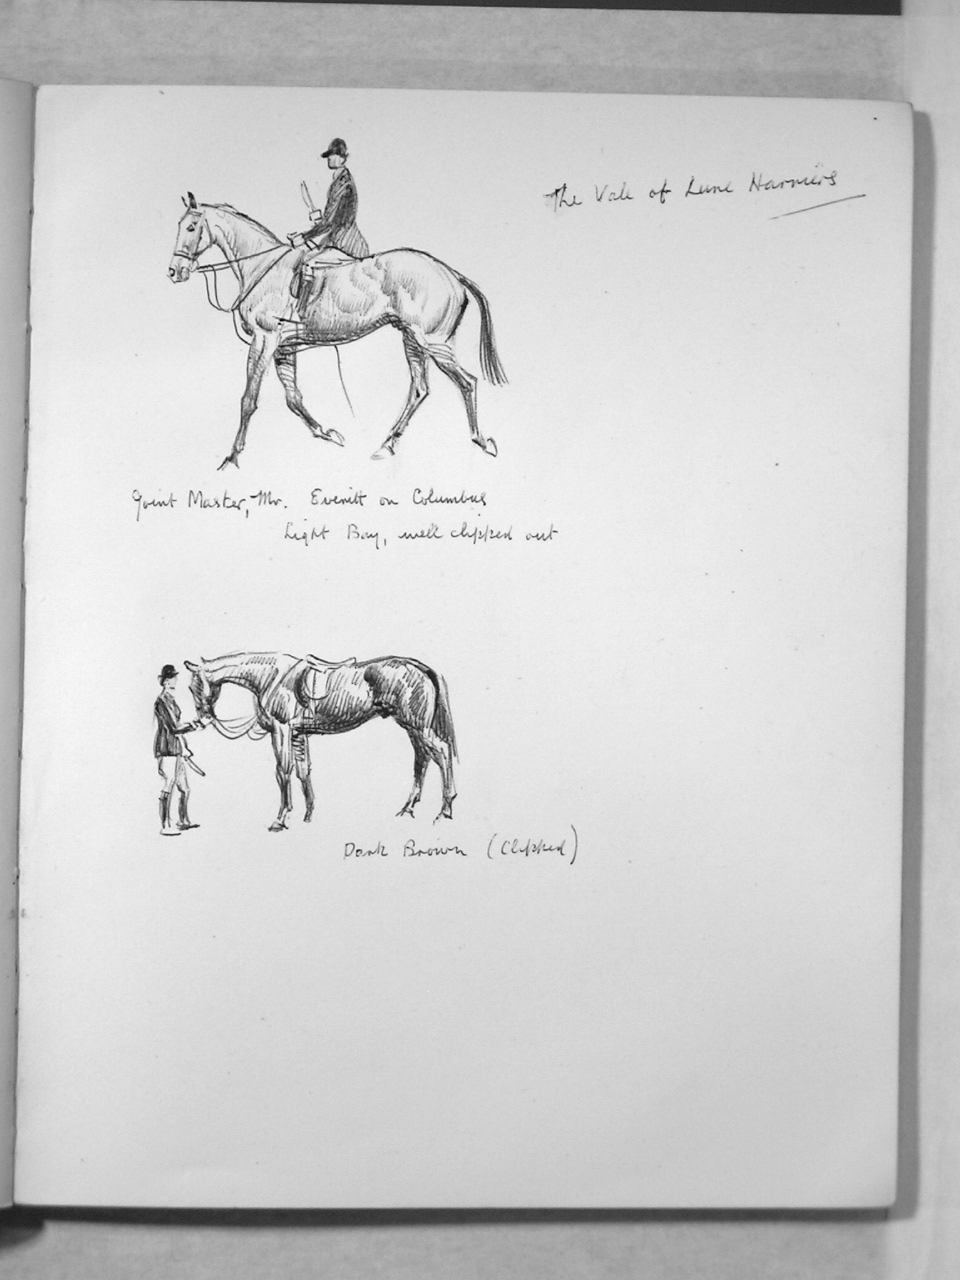 The Vale of Lune Harriers
Joint Master, Mr. Everitt on Columbus
Light Bay, well clipped out
Dark Brown (Clipped)